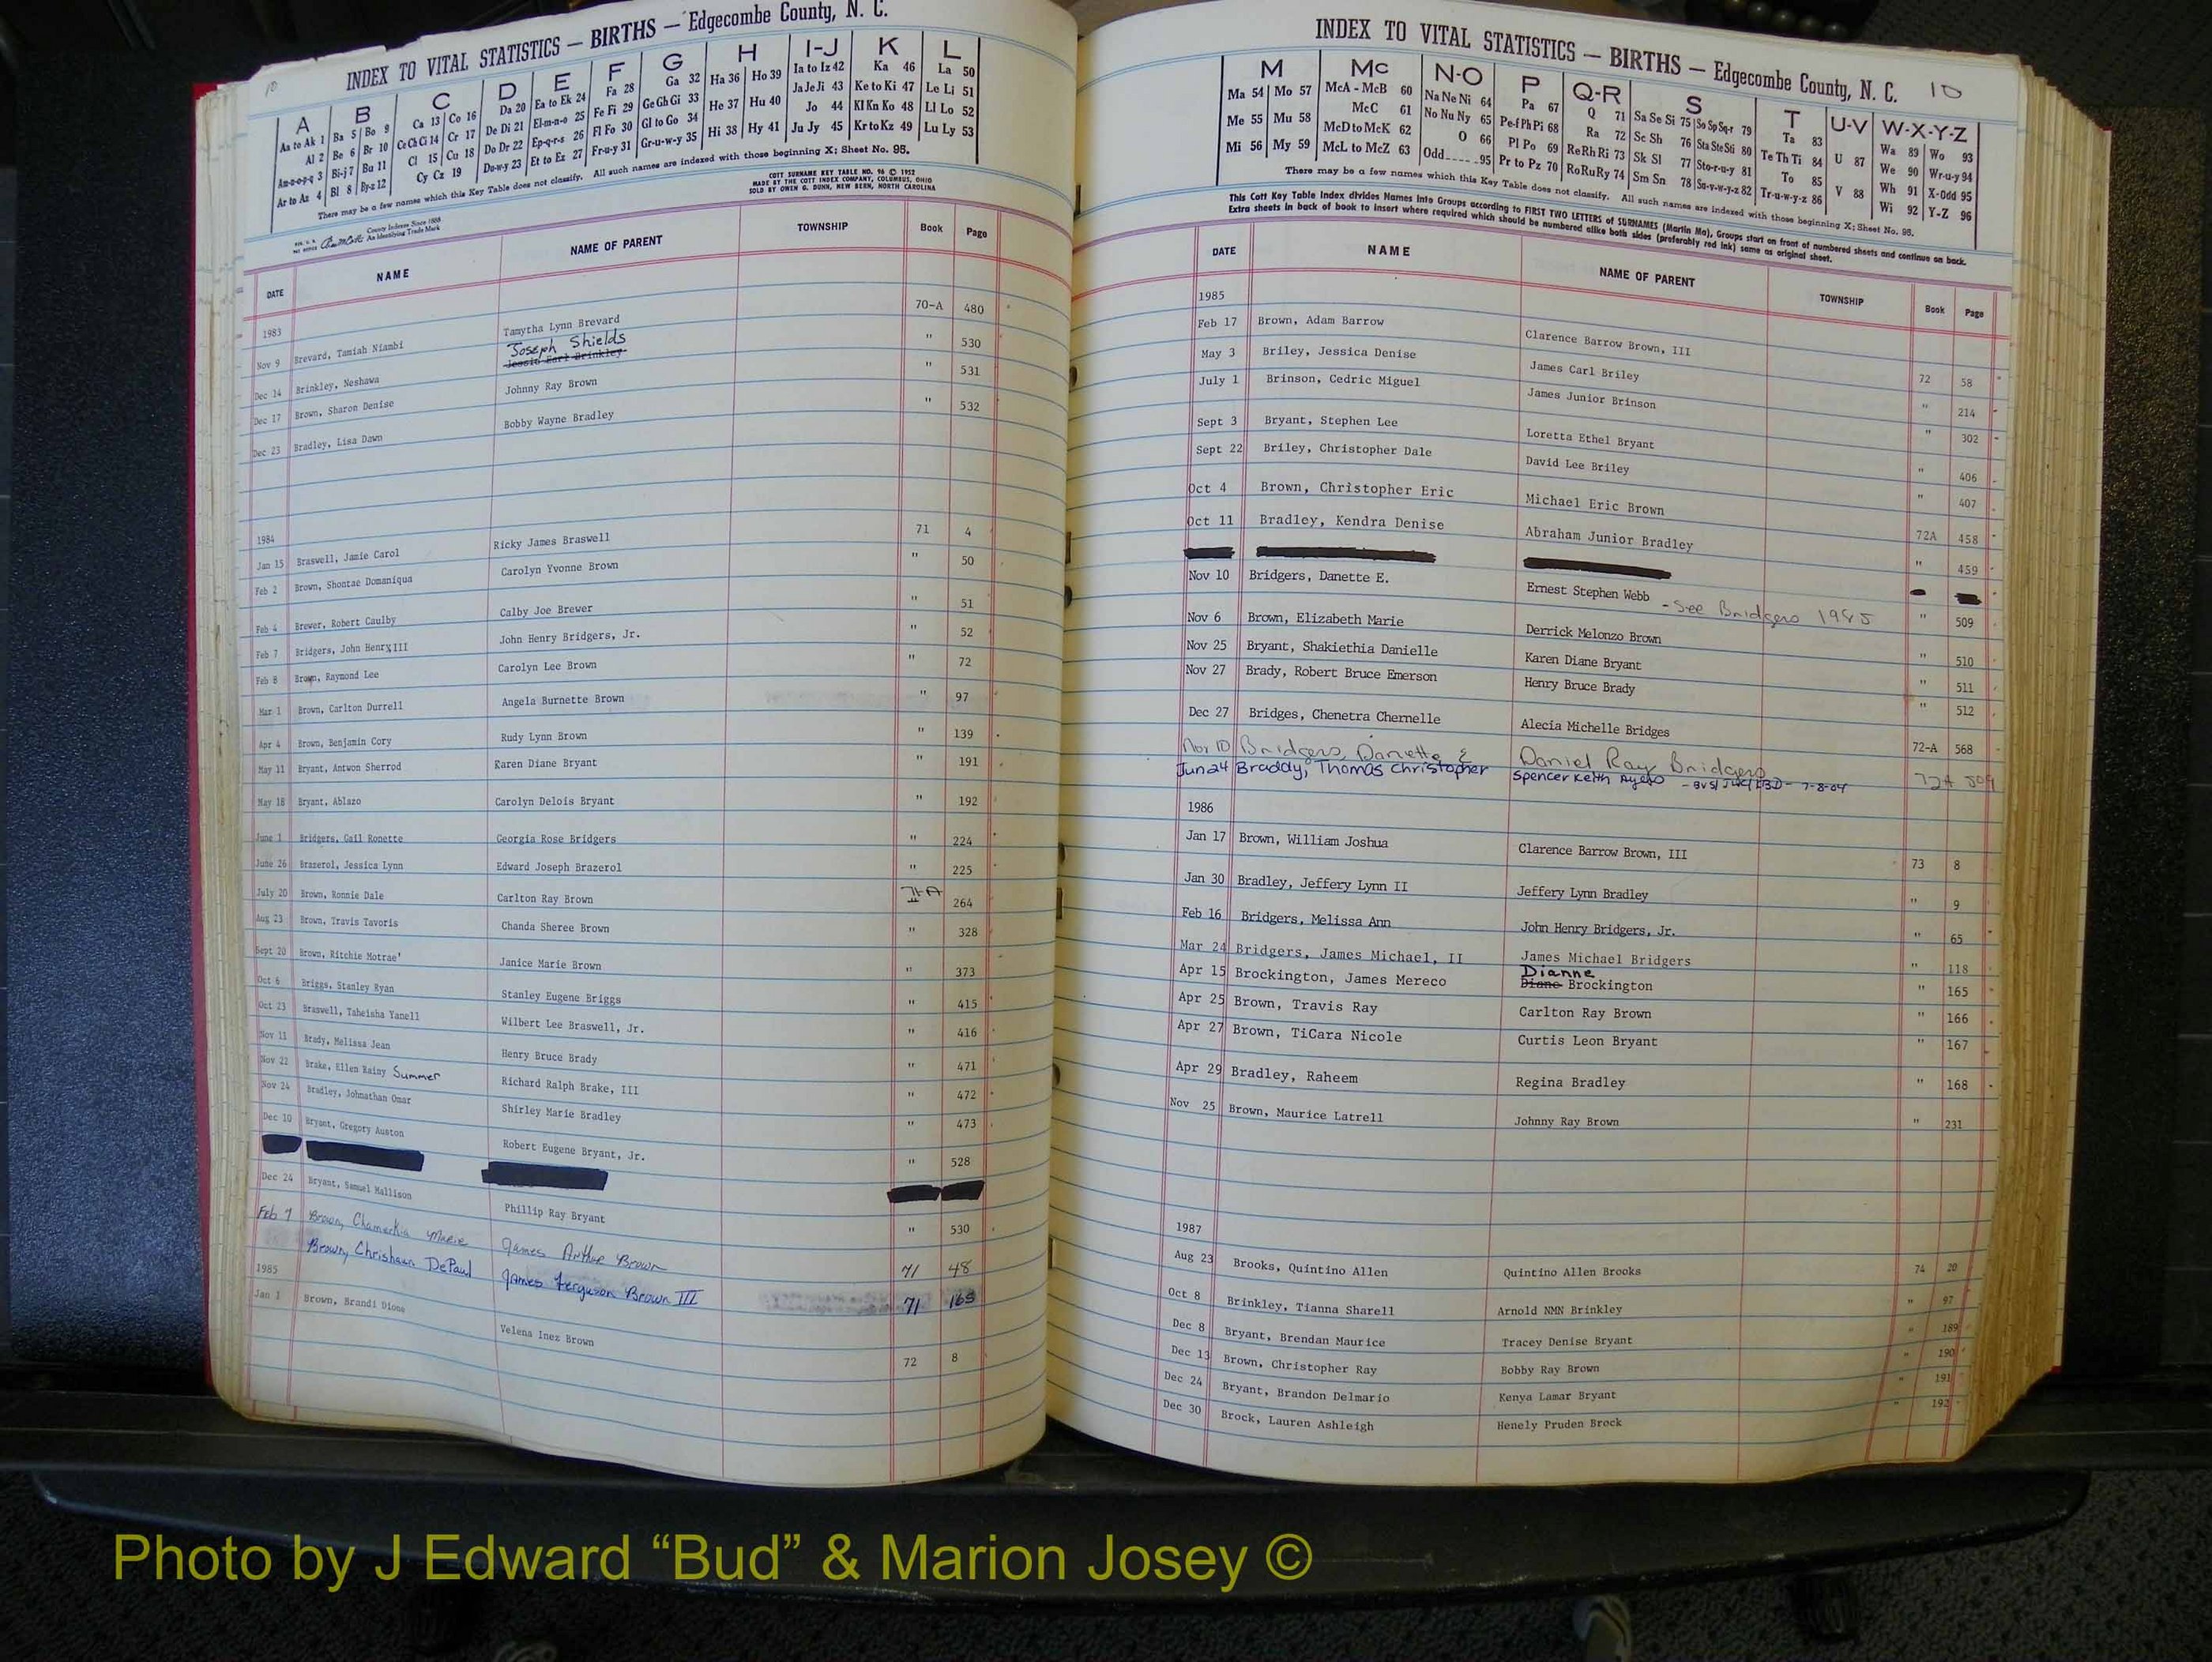 10
INDEX TO VITAL STATISTICS — BIRTHS — Edgecombe County, N. C.
A B C D E F G H I-J K L
Aa to Ak 1 Ba 5 Bo 9 Ca 13 Co 16 Da 20 Ea to Ek 24 Fa 28 Ga 32 Ha 36 Ho 39 Ia to Iz 42 Ka 46 La 50
Al 2 Be 6 Br 10 Ce Ch Ci 14 Cr 17 De Di 21 El-m-n-o 25 Fe Fi 29 Ge Gh Gi 33 He 37 Hu 40 Ja Je Ji 43 Ke to Ki 47 Le Li 51
Am-n-o-p-q 3 Bi-j 7 Bu 11 Cl 15 Cu 18 Do Dr 22 Ep-q-r-s 26 Fl Fo 30 Gl to Go 34 Hi 38 Hy 41 Jo 44 Kl Kn Ko 48 Ll Lo 52
Ar to Az 4 Bl 8 By-z 12 Cy Cz 19 Du-w-y 23 Et to Ez 27 Fr-u-y 31 Gr-u-w-y 35 Ju Jy 45 Kr to Kz 49 Lu Ly 53
There may be a few names which this Key Table does not classify. All such names are indexed with those beginning X; Sheet No. 95.
COTT SURNAME KEY TABLE NO. 96 © 1952
MADE BY THE COTT INDEX COMPANY, COLUMBUS, OHIO
SOLD BY OWEN G. DUNN, NEW BERN, NORTH CAROLINA
County Indexes Since 1888
An Identifying Trade Mark
DATE NAME NAME OF PARENT TOWNSHIP Book Page
1983
Nov 9 Brevard, Tamiah Niambi Tamytha Lynn Brevard 70-A 480
Joseph Shields
Dec 14 Brinkley, Neshawa Jessie Earl Brinkley " 530
Dec 17 Brown, Sharon Denise Johnny Ray Brown " 531
Dec 23 Bradley, Lisa Dawn Bobby Wayne Bradley " 532
1984
Jan 15 Braswell, Jamie Carol Ricky James Braswell 71 4
Feb 2 Brown, Shontae Domaniqua Carolyn Yvonne Brown " 50
Feb 4 Brewer, Robert Caulby Calby Joe Brewer " 51
Feb 7 Bridgers, John Henry III John Henry Bridgers, Jr. " 52
Feb 8 Brown, Raymond Lee Carolyn Lee Brown " 72
Mar 1 Brown, Carlton Durrell Angela Burnette Brown " 97
Apr 4 Brown, Benjamin Cory Rudy Lynn Brown " 139
May 11 Bryant, Antwon Sherrod Karen Diane Bryant " 191
May 18 Bryant, Ablazo Carolyn Delois Bryant " 192
June 1 Bridgers, Gail Ronette Georgia Rose Bridgers " 224
June 26 Brazerol, Jessica Lynn Edward Joseph Brazerol " 225
July 20 Brown, Ronnie Dale Carlton Ray Brown 71-A 264
Aug 23 Brown, Travis Tavoris Chanda Sheree Brown " 328
Sept 20 Brown, Ritchie Motrae' Janice Marie Brown " 373
Oct 6 Briggs, Stanley Ryan Stanley Eugene Briggs " 415
Oct 23 Braswell, Taheisha Yanell Wilbert Lee Braswell, Jr. " 416
Nov 11 Brady, Melissa Jean Henry Bruce Brady " 471
Nov 22 Brake, Ellen Rainy Summer Richard Ralph Brake, III " 472
Nov 24 Bradley, Johnathan Omar Shirley Marie Bradley " 473
Dec 10 Bryant, Gregory Auston Robert Eugene Bryant, Jr. " 528
Dec 24 Bryant, Samuel Mallison Phillip Ray Bryant " 530
Feb 7 Brown, Chamerkia Marie James Arthur Brown 71 48
Brown, Chrishaun DePaul James Ferguson Brown III 71 165
1985
Jan 1 Brown, Brandi Dione Velena Inez Brown 72 8
INDEX TO VITAL STATISTICS — BIRTHS — Edgecombe County, N. C. 10
M Mc N-O P Q-R S T U-V W-X-Y-Z
Ma 54 Mo 57 McA - McB 60 Na Ne Ni 64 Pa 67 Q 71 Sa Se Si 75 So Sp Sq-r 79 Ta 83 U 87 Wa 89 Wo 93
Me 55 Mu 58 McC 61 No Nu Ny 65 Pe-f Ph Pi 68 Ra 72 Sc Sh 76 Sta Ste Sti 80 Te Th Ti 84 V 88 We 90 Wr-u-y 94
Mi 56 My 59 McD to McK 62 O 66 Pl Po 69 Re Rh Ri 73 Sk Sl 77 Sto-r-u-y 81 To 85 Wh 91 X-Odd 95
McL to McZ 63 Odd 95 Pr to Pz 70 Ro Ru Ry 74 Sm Sn 78 Su-v-w-y-z 82 Tr-u-w-y-z 86 Wi 92 Y-Z 96
There may be a few names which this Key Table does not classify. All such names are indexed with those beginning X; Sheet No. 95.
This Cott Key Table Index divides Names into Groups according to FIRST TWO LETTERS of SURNAMES (Martin Ma), Groups start on front of numbered sheets and continue on back.
Extra sheets in back of book to insert where required which should be numbered alike both sides (preferably red ink) same as original sheet.
DATE NAME NAME OF PARENT TOWNSHIP Book Page
1985
Feb 17 Brown, Adam Barrow Clarence Barrow Brown, III 72 58
May 3 Briley, Jessica Denise James Carl Briley " 214
July 1 Brinson, Cedric Miguel James Junior Brinson " 302
Sept 3 Bryant, Stephen Lee Loretta Ethel Bryant " 406
Sept 22 Briley, Christopher Dale David Lee Briley " 407
Oct 4 Brown, Christopher Eric Michael Eric Brown 72A 458
Oct 11 Bradley, Kendra Denise Abraham Junior Bradley " 459
Nov 10 Bridgers, Danette E. Ernest Stephen Webb - See Bridgers 1985 " 509
Nov 6 Brown, Elizabeth Marie Derrick Melonzo Brown " 510
Nov 25 Bryant, Shakiethia Danielle Karen Diane Bryant " 511
Nov 27 Brady, Robert Bruce Emerson Henry Bruce Brady " 512
Dec 27 Bridges, Chenetra Chernelle Alecia Michelle Bridges 72-A 568
Nov 10 Bridgers, Danette E Daniel Ray Bridgers 72A 509
Jun 24 Braddy, Thomas Christopher Spencer Keith 7-8-04
1986
Jan 17 Brown, William Joshua Clarence Barrow Brown, III 73 8
Jan 30 Bradley, Jeffery Lynn II Jeffery Lynn Bradley " 9
Feb 16 Bridgers, Melissa Ann John Henry Bridgers, Jr. " 65
Mar 24 Bridgers, James Michael, II James Michael Bridgers " 118
Dianne
Apr 15 Brockington, James Mereco Diane Brockington " 165
Apr 25 Brown, Travis Ray Carlton Ray Brown " 166
Apr 27 Brown, TiCara Nicole Curtis Leon Bryant " 167
Apr 29 Bradley, Raheem Regina Bradley " 168
Nov 25 Brown, Maurice Latrell Johnny Ray Brown " 231
1987
Aug 23 Brooks, Quintino Allen Quintino Allen Brooks 74 20
Oct 8 Brinkley, Tianna Sharell Arnold NMN Brinkley " 97
Dec 8 Bryant, Brendan Maurice Tracey Denise Bryant " 189
Dec 13 Brown, Christopher Ray Bobby Ray Brown " 190
Dec 24 Bryant, Brandon Delmario Kenya Lamar Bryant " 191
Dec 30 Brock, Lauren Ashleigh Henely Pruden Brock " 192
Photo by J Edward “Bud” & Marion Josey ©